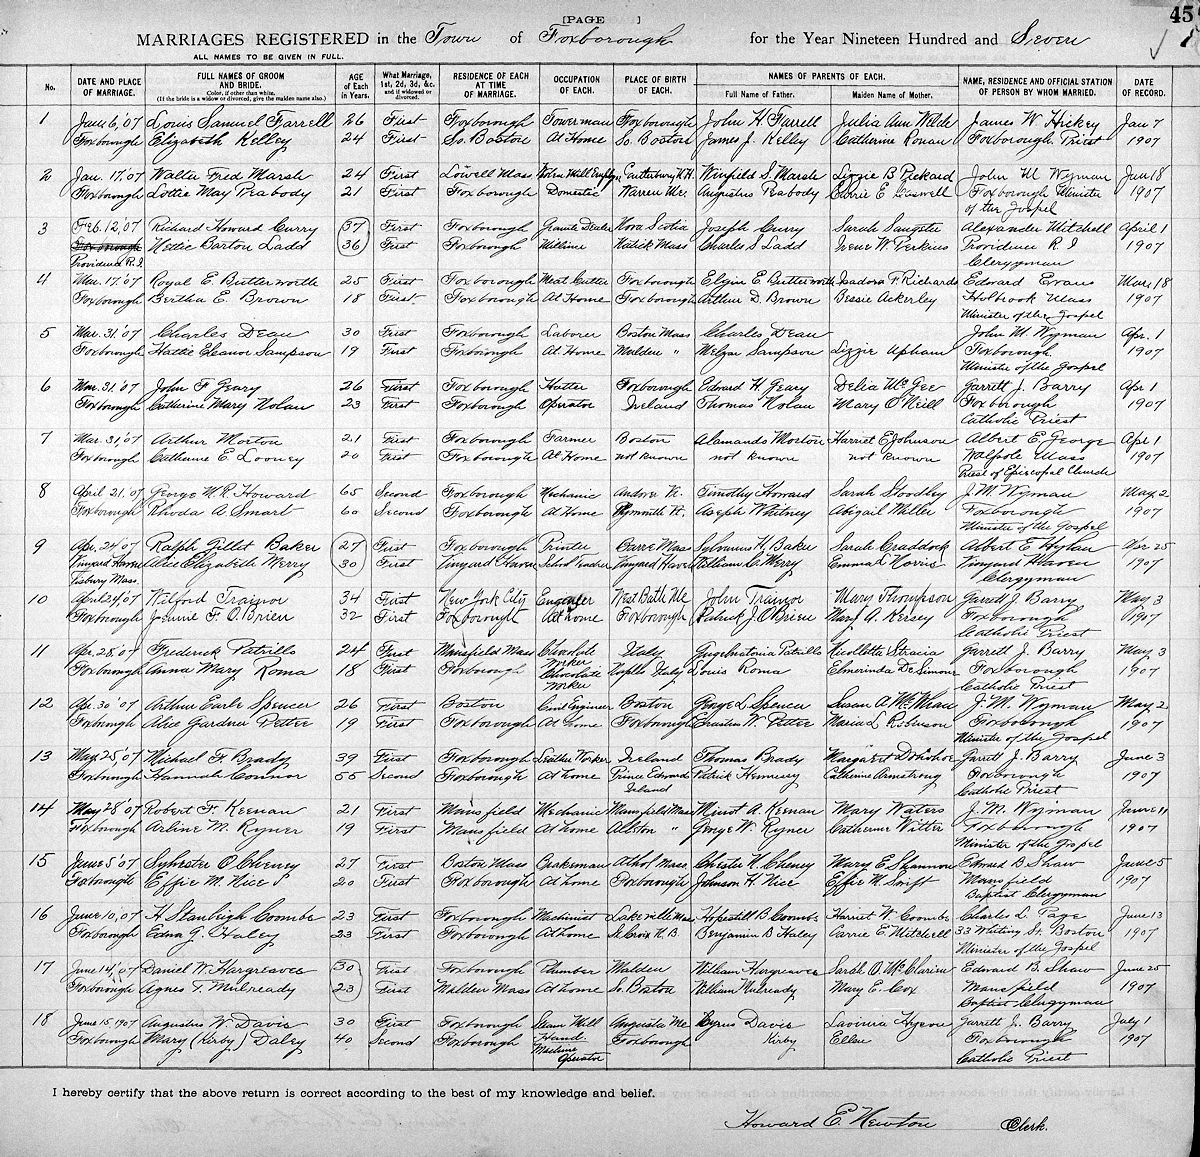 [PAGE ]
45
MARRIAGES REGISTERED in the Town of Foxborough for the Year Nineteen Hundred and Seven
ALL NAMES TO BE GIVEN IN FULL.
No. DATE AND PLACE OF MARRIAGE. FULL NAMES OF GROOM AND BRIDE. Color, if other than white. (If the bride is a widow or divorced, give the maiden name also.) AGE of Each in Years. What Marriage, 1st, 2d, 3d, &c. and if widowed or divorced. RESIDENCE OF EACH AT TIME OF MARRIAGE. OCCUPATION OF EACH. PLACE OF BIRTH OF EACH. NAMES OF PARENTS OF EACH. Full Name of Father. Maiden Name of Mother. NAME, RESIDENCE AND OFFICIAL STATION OF PERSON BY WHOM MARRIED. DATE OF RECORD.
1 Jan 6, '07 Louis Samuel Farrell 26 First Foxborough Towerman Foxborough John H Farrell Julia Ann Wilde James W Hickey Jan 7
Foxborough Elizabeth Kelley 24 First So. Boston At Home So. Boston James J. Kelley Catherine Ronan Foxborough Priest 1907
2 Jan. 17, 07 Walter Fred Marsh 24 First Lowell Mass Canterbury N.H. Winfield S. Marsh Lizzie B Pickard John M Wyman Jan 18
Foxborough Lottie May Peabody 21 First Foxborough Domestic Warren Me. Augustus Peabody Carrie E Foxborough Minister 1907
of the Gospel
3 Feb. 12, 07 Richard Howard Curry 37 First Foxborough Granite Dealer Nova Scotia Joseph Curry Sarah Sangster Alexander Mitchell April 1
Foxborough Nettie Barton Ladd 36 First Foxborough Natick Mass Charles S Ladd Irene W Perkins Providence R. I 1907
Providence R.I. Clergyman
4 Mar. 17, '07 Royal E. Butterworth 25 First Foxborough Meat Cutter Foxborough Elgin E Butterworth Isadora F. Richards Edward Evans Mar. 18
Foxborough Bertha E. Brown 18 First Foxborough At Home Foxborough Arthur D. Brown Bessie Ackerley Holbrook Mass 1907
Minister of the Gospel
5 Mar. 31, '07 Charles Dean 30 First Foxborough Laborer Boston Mass Charles Dean John M. Wyman Apr. 1
Foxborough Hattie Eleanor Sampson 19 First Foxborough At Home Malden " Sampson Lizzie Upham Foxborough 1907
Minister of the Gospel
6 Mar. 31, '07 John F Geary 26 First Foxborough Hatter Foxborough Edward H. Geary Delia McGee Garrett J. Barry Apr 1
Foxborough Catherine Mary Nolan 23 First Foxborough Operator Ireland Thomas Nolan Mary O'Neill Foxborough 1907
Catholic Priest
7 Mar. 31, '07 Arthur Morton 21 First Foxborough Farmer Boston Alamando Morton Harriet E Johnson Albert E. George Apr 1
Foxborough Catherine E. Looney 20 First Foxborough At Home not known not known not known Walpole Mass 1907
Priest of Episcopal Church
8 April 21, '07 George M.R. Howard 65 Second Foxborough Mechanic Timothy Howard Sarah Stoodley J. M. Wyman May 2
Foxborough Rhoda A. Smart 60 Second Foxborough At Home Plymouth Vt. Asaph Whitney Abigail Miller Foxborough 1907
Minister of the Gospel
9 Apr. 24, '07 Ralph Gillet Baker 27 First Foxborough Printer Barre Mass Sylvanus H. Baker Sarah Craddock Albert E Hylan Apr 25
Vinyard Haven Alice Elizabeth Merry 30 First Vinyard Haven School Teacher Vinyard Haven William C. Merry Emma L Norris Vinyard Haven 1907
Tisbury Mass. Clergyman
10 April 24, '07 Wilford Trainor 34 First New York City Engineer West Bath Me John Trainor Mary Thompson Garrett J. Barry May 3
Foxborough Jennie F. O'Brien 32 First Foxborough At home Foxborough Patrick J. O'Brien Mary A. Kersey Foxborough 1907
Catholic Priest
11 Apr. 28, '07 Frederick Patrillo 24 First Mansfield Mass Chocolate Worker Italy Patrillo Nicolletta Garrett J. Barry May 3
Foxborough Anna Mary Roma 18 First Foxborough Chocolate Worker Naples Italy Louis Roma Elmerinda De Simone Foxborough 1907
Catholic Priest
12 Apr. 30 '07 Arthur Earle Spencer 26 First Boston Civil Engineer Boston George L Spencer Susan A J. M. Wyman May 2
Foxborough Alice Gardner Pettee 19 First Foxborough At home Foxborough W. Pettee Maria L Robinson Foxborough 1907
Minister of the Gospel
13 May 25, '07 Michael F. Brady 39 First Foxborough Leather Worker Ireland Thomas Brady Margaret Donohoe Garrett J. Barry June 3
Foxborough Hannah Connor 55 Second Foxborough At home Prince Edward Island Patrick Hennessy Catherine Armstrong Foxborough 1907
Catholic Priest
14 May 28 '07 Robert F. Keenan 21 First Mansfield Mechanic Mansfield Mass Minot A. Keenan Mary Waters J. M. Wyman June 11
Foxborough Arline M. Ryner 19 First Mansfield At home Allston " George W. Ryner Catherine Witter Foxborough 1907
Minister of the Gospel
15 June 5 '07 Sylvester O. Cheney 27 First Boston Mass Brakeman Athol Mass Chester N. Cheney Mary E. Shannon Edward B Shaw June 5
Foxborough Effie M. Nice 20 First Foxborough At home Foxborough Johnson H. Nice Effie M. Swift Mansfield 1907
Baptist Clergyman
16 June 10, '07 H Stanleigh Coombs 23 First Foxborough Machinist Lakeville Mass Hopestill B Coombs Harriet W. Coombs Charles L. Page June 13
Foxborough Edna G. Haley 23 First Foxborough At home St. Croix N.B. Benjamin B Haley Carrie E Mitchell 33 Whiting St. Boston 1907
Minister of the Gospel
17 June 14, '07 Daniel W. Hargreaves 30 First Foxborough Plumber Malden William Hargreaves Sarah O. Edward B. Shaw June 25
Foxborough Agnes T. Mulready 23 First Malden Mass At home So. Boston William Mulready Mary E. Cox Mansfield 1907
Baptist Clergyman
18 June 15, 1907 Augustus W. Davis 30 First Foxborough Steam Mill Hand Augusta Me Cyrus Davis Lavinia Garrett J. Barry July 1
Foxborough Mary (Kirby) Daley 40 Second Foxborough Machine Operator Foxborough Kirby Ellen Foxborough 1907
Catholic Priest
I hereby certify that the above return is correct according to the best of my knowledge and belief.
Howard E. Newton Clerk.